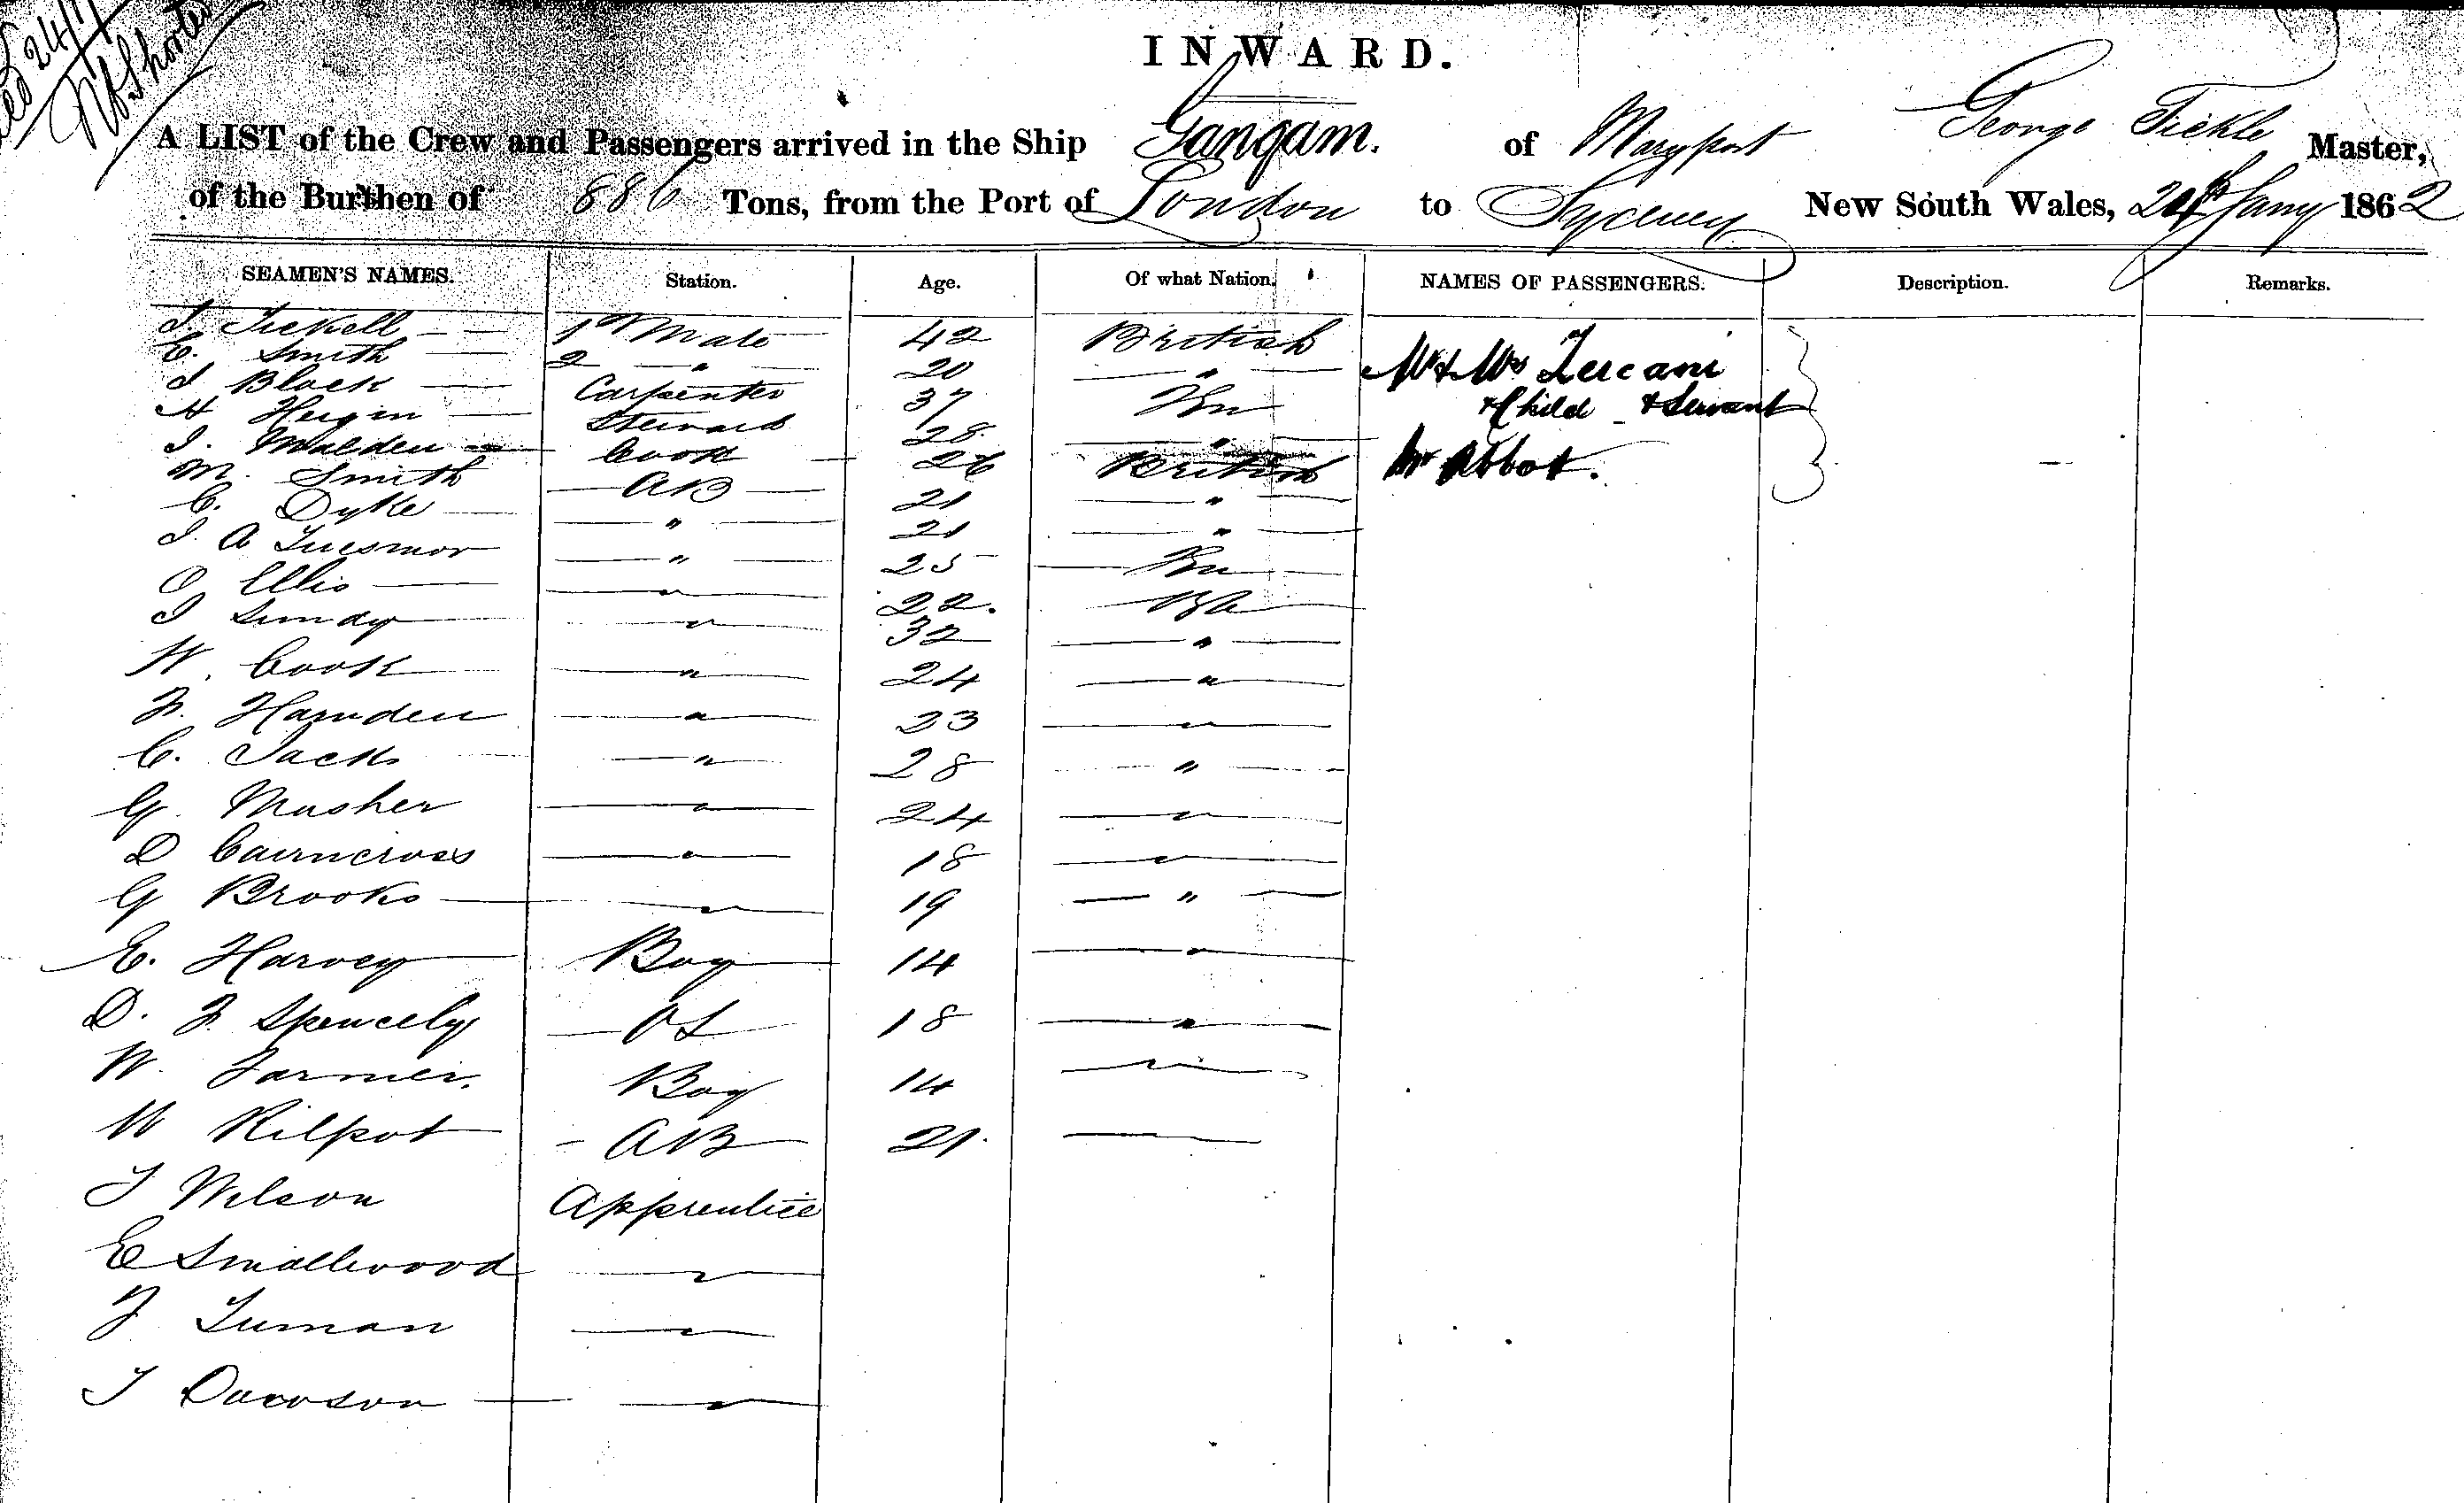 24/1
INWARD.
A LIST of the Crew and Passengers arrived in the Ship Gangam. of Maryport George Tickle Master,
of the Burthen of 886 Tons, from the Port of London to Sydney New South Wales, 24th Jany 1862
SEAMEN'S NAMES. Station. Age. Of what Nation. NAMES OF PASSENGERS. Description. Remarks.
J. Tickell 1st Mate 42 British
E. Smith 2 " 20 " Mr & Mrs
J Black Carpenter 37 & Child & Servant
H Steward 28 "
J. Malden Cook 26 British Mr Abbot.
M. Smith AB 21 "
C. Dyke " 21 "
J. A " 25
O Ellis " 22.
J " 32 "
W. Cook " 24 "
F. Harnden " 23 "
C. Jack " 28 "
G. Mosher " 24 "
D Cairncross " 18 "
G Brooks " 19 "
E. Harvey Boy 14 "
D. F. Spencely OS 18 "
W. Farmer. Boy 14 "
W Kilpot AB 21.
J Wilson Apprentice
E Smallwood "
J "
J Dawson "